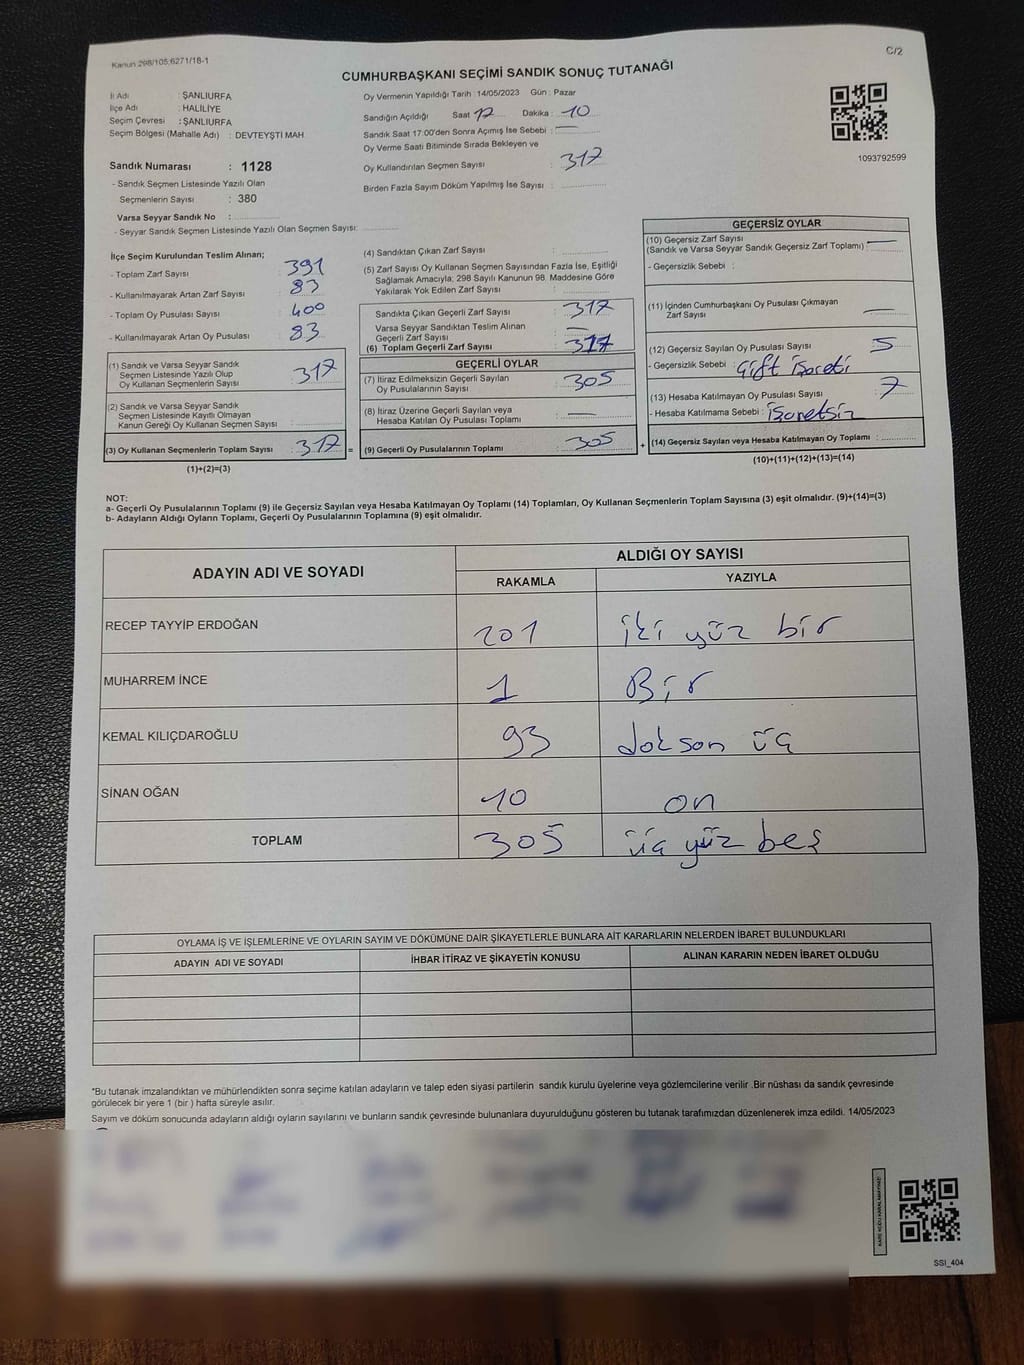 Kanun 298/105;6271/18-1
C/2
CUMHURBAŞKANI SEÇİMİ SANDIK SONUÇ TUTANAĞI
İl Adı : ŞANLIURFA
İlçe Adı : HALİLİYE
Seçim Çevresi : ŞANLIURFA
Seçim Bölgesi (Mahalle Adı) : DEVTEYŞTİ MAH
Sandık Numarası : 1128
- Sandık Seçmen Listesinde Yazılı Olan
Seçmenlerin Sayısı : 380
Varsa Seyyar Sandık No :
- Seyyar Sandık Seçmen Listesinde Yazılı Olan Seçmen Sayısı:
Oy Vermenin Yapıldığı Tarih : 14/05/2023 Gün : Pazar
Sandığın Açıldığı Saat 17 Dakika : 10
Sandık Saat 17:00'den Sonra Açımış İse Sebebi : —
Oy Verme Saati Bitiminde Sırada Bekleyen ve
Oy Kullandırılan Seçmen Sayısı : 317
Birden Fazla Sayım Döküm Yapılmış İse Sayısı :
1093792599
İlçe Seçim Kurulundan Teslim Alınan;
- Toplam Zarf Sayısı : 391
- Kullanılmayarak Artan Zarf Sayısı : 83
- Toplam Oy Pusulası Sayısı : 400
- Kullanılmayarak Artan Oy Pusulası : 83
(1) Sandık ve Varsa Seyyar Sandık
Seçmen Listesinde Yazılı Olup
Oy Kullanan Seçmenlerin Sayısı : 317
(2) Sandık ve Varsa Seyyar Sandık
Seçmen Listesinde Kayıtlı Olmayan
Kanun Gereği Oy Kullanan Seçmen Sayısı :
(3) Oy Kullanan Seçmenlerin Toplam Sayısı : 317 =
(1)+(2)=(3)
(4) Sandıktan Çıkan Zarf Sayısı :
(5) Zarf Sayısı Oy Kullanan Seçmen Sayısından Fazla İse, Eşitliği
Sağlamak Amacıyla; 298 Sayılı Kanunun 98. Maddesine Göre
Yakılarak Yok Edilen Zarf Sayısı :
Sandıkta Çıkan Geçerli Zarf Sayısı : 317
Varsa Seyyar Sandıktan Teslim Alınan
Geçerli Zarf Sayısı : —
(6) Toplam Geçerli Zarf Sayısı : 317
GEÇERLİ OYLAR
(7) İtiraz Edilmeksizin Geçerli Sayılan
Oy Pusulalarının Sayısı : 305
(8) İtiraz Üzerine Geçerli Sayılan veya
Hesaba Katılan Oy Pusulası Toplamı : —
(9) Geçerli Oy Pusulalarının Toplamı : 305 +
GEÇERSİZ OYLAR
(10) Geçersiz Zarf Sayısı
(Sandık ve Varsa Seyyar Sandık Geçersiz Zarf Toplamı) : —
- Geçersizlik Sebebi :
(11) İçinden Cumhurbaşkanı Oy Pusulası Çıkmayan
Zarf Sayısı : —
(12) Geçersiz Sayılan Oy Pusulası Sayısı : 5
- Geçersizlik Sebebi : Çift işareti
(13) Hesaba Katılmayan Oy Pusulası Sayısı : 7
- Hesaba Katılmama Sebebi : işaretsiz
(14) Geçersiz Sayılan veya Hesaba Katılmayan Oy Toplamı :
(10)+(11)+(12)+(13)=(14)
NOT:
a- Geçerli Oy Pusulalarının Toplamı (9) ile Geçersiz Sayılan veya Hesaba Katılmayan Oy Toplamı (14) Toplamları, Oy Kullanan Seçmenlerin Toplam Sayısına (3) eşit olmalıdır. (9)+(14)=(3)
b- Adayların Aldığı Oyların Toplamı, Geçerli Oy Pusulalarının Toplamına (9) eşit olmalıdır.
ADAYIN ADI VE SOYADI ALDIĞI OY SAYISI
RAKAMLA YAZIYLA
RECEP TAYYİP ERDOĞAN 201 iki yüz bir
MUHARREM İNCE 1 Bir
KEMAL KILIÇDAROĞLU 93 doksan üç
SİNAN OĞAN 10 on
TOPLAM 305 üç yüz beş
OYLAMA İŞ VE İŞLEMLERİNE VE OYLARIN SAYIM VE DÖKÜMÜNE DAİR ŞİKAYETLERLE BUNLARA AİT KARARLARIN NELERDEN İBARET BULUNDUKLARI
ADAYIN ADI VE SOYADI İHBAR İTİRAZ VE ŞİKAYETİN KONUSU ALINAN KARARIN NEDEN İBARET OLDUĞU
*Bu tutanak imzalandıktan ve mühürlendikten sonra seçime katılan adayların ve talep eden siyasi partilerin sandık kurulu üyelerine veya gözlemcilerine verilir .Bir nüshası da sandık çevresinde
görülecek bir yere 1 (bir ) hafta süreyle asılır.
Sayım ve döküm sonucunda adayların aldığı oyların sayılarını ve bunların sandık çevresinde bulunanlara duyurulduğunu gösteren bu tutanak tarafımızdan düzenlenerek imza edildi. 14/05/2023
SSİ_404